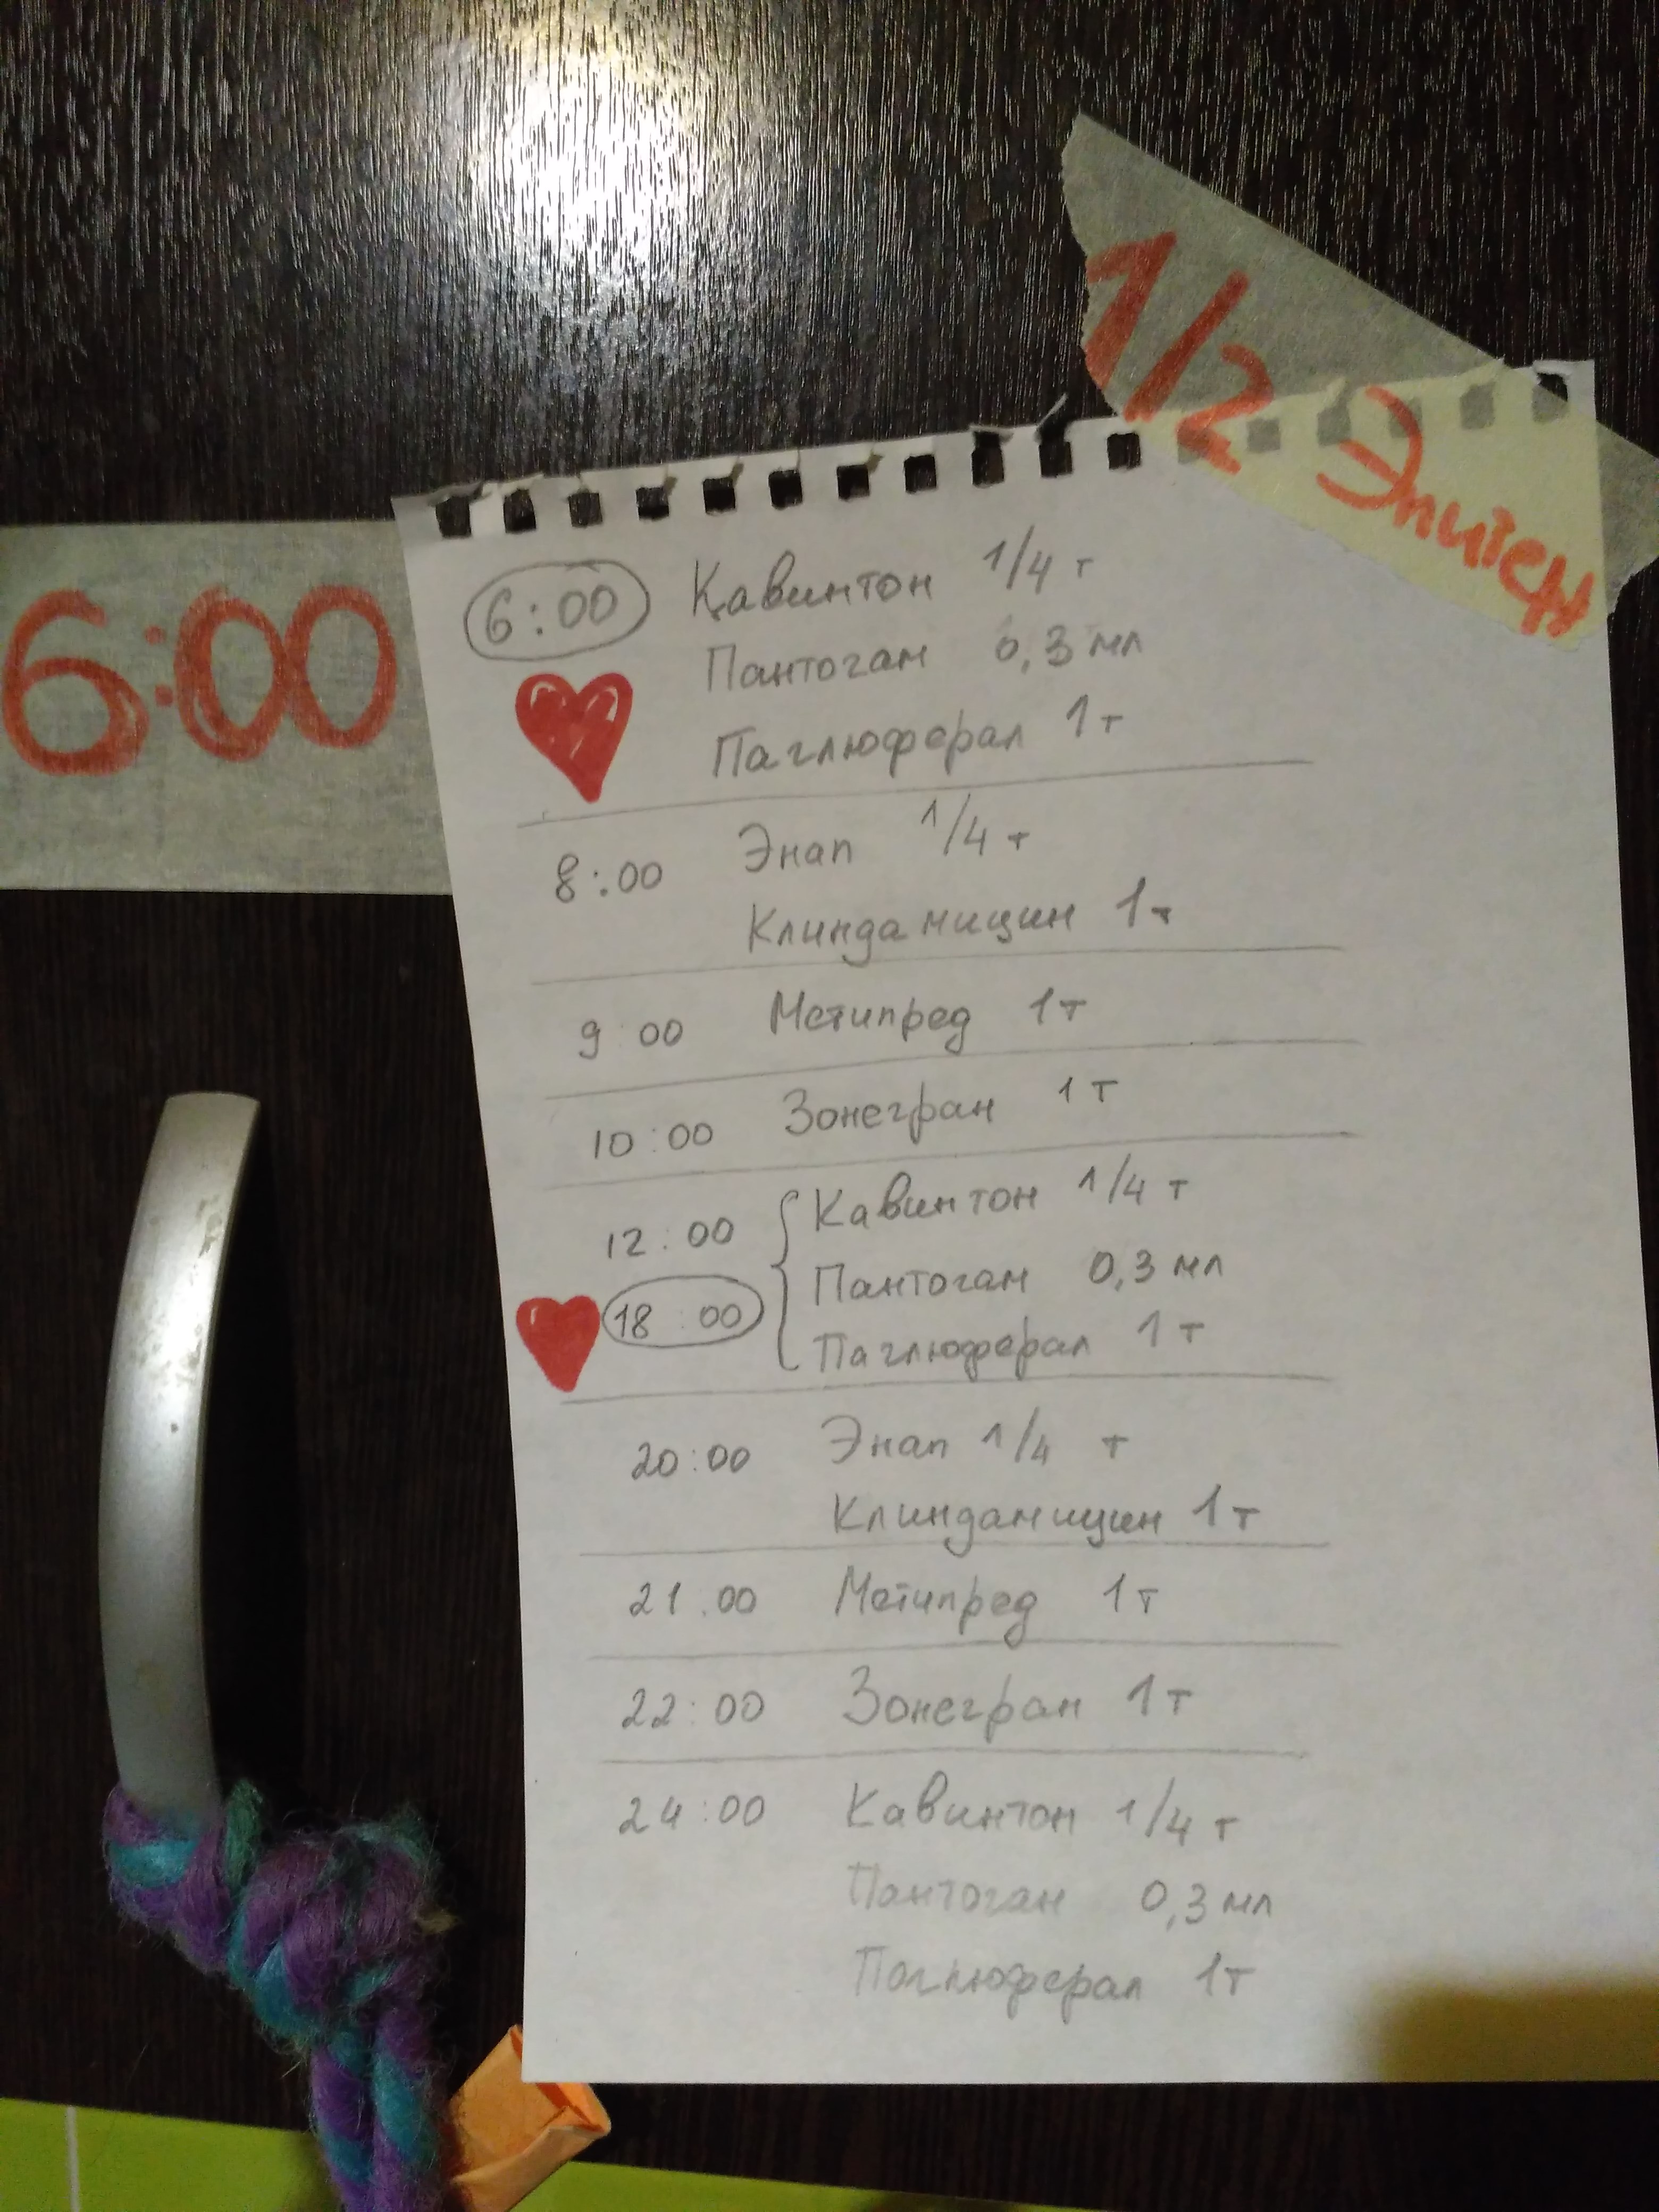 1/2 Эпитен
6:00
6:00 Кавинтон 1/4 т
Пантогам 0,3 мл
Паглюферал 1 т
8:00 Энап 1/4 т
Клиндамицин 1 т
9:00 Метипред 1 т
10:00 Зонегран 1 т
12:00 Кавинтон 1/4 т
Пантогам 0,3 мл
18:00 Паглюферал 1 т
20:00 Энап 1/4 т
Клиндамицин 1 т
21:00 Метипред 1 т
22:00 Зонегран 1 т
24:00 Кавинтон 1/4 т
Пантогам 0,3 мл
Паглюферал 1 т